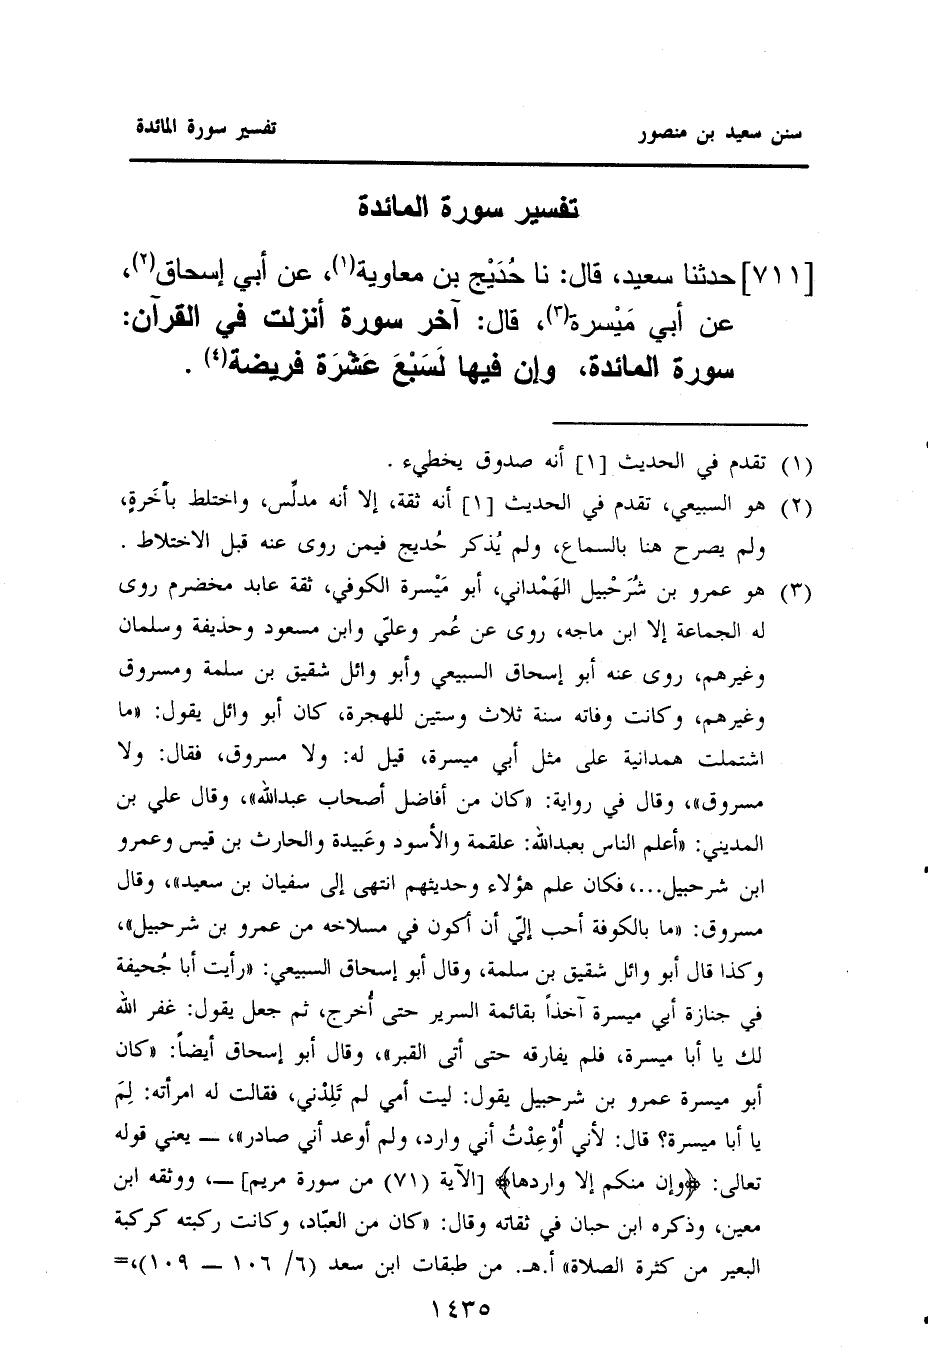 سنن سعيد بن منصور
تفسير سورة المائدة
تفسير سورة المائدة
[٧١١] حدثنا سعيد، قال: نا حُدَيْج بن معاوية(١)، عن أبي إسحاق(٢)،
عن أبي مَيْسرة(٣)، قال: آخر سورة أنزلت في القرآن:
سورة المائدة، وإن فيها لَسَبْعَ عَشْرَة فريضة(٤) .
(١) تقدم في الحديث [١] أنه صدوق يخطيء .
(٢) هو السبيعي، تقدم في الحديث [١] أنه ثقة، إلا أنه مدلّس، واختلط بآخَرةٍ،
ولم يصرح هنا بالسماع، ولم يُذكر حُديج فيمن روى عنه قبل الاختلاط .
(٣) هو عمرو بن شُرَحْبيل الهَمْداني، أبو مَيْسرة الكوفي، ثقة عابد مخضرم روى
له الجماعة إلا ابن ماجه، روى عن عُمر وعليّ وابن مسعود وحذيفة وسلمان
وغيرهم، روى عنه أبو إسحاق السبيعي وأبو وائل شقيق بن سلمة ومسروق
وغيرهم، وكانت وفاته سنة ثلاث وستين للهجرة، كان أبو وائل يقول: «ما
اشتملت همدانية على مثل أبي ميسرة، قيل له: ولا مسروق، فقال: ولا
مسروق»، وقال في رواية: «كان من أفاضل أصحاب عبدالله»، وقال علي بن
المديني: «أعلم الناس بعبدالله: علقمة والأسود وعَبيدة والحارث بن قيس وعمرو
ابن شرحبيل...، فكان علم هؤلاء وحديثهم انتهى إلى سفيان بن سعيد»، وقال
مسروق: «ما بالكوفة أحب إليّ أن أكون في مسلاخه من عمرو بن شرحبيل»،
وكذا قال أبو وائل شقيق بن سلمة، وقال أبو إسحاق السبيعي: «رأيت أبا جُحيفة
في جنازة أبي ميسرة آخذاً بقائمة السرير حتى أُخرج، ثم جعل يقول: غفر الله
لك يا أبا ميسرة، فلم يفارقه حتى أتى القبر»، وقال أبو إسحاق أيضاً: «كان
أبو ميسرة عمرو بن شرحبيل يقول: ليت أمي لم تَلِدْني، فقالت له امرأته: لِمَ
يا أبا ميسرة؟ قال: لأني أُوْعِدْتُ أني وارد، ولم أوعد أني صادر»، ــ يعني قوله
تعالى: ﴿وإن منكم إلا واردها﴾ [الآية (٧١) من سورة مريم] ــ، ووثقه ابن
معين، وذكره ابن حبان في ثقاته وقال: «كان من العبّاد، وكانت ركبته كركبة
البعير من كثرة الصلاة» أ.هـ. من طبقات ابن سعد (٦/ ١٠٦ ــ ١٠٩)،=
١٤٣٥